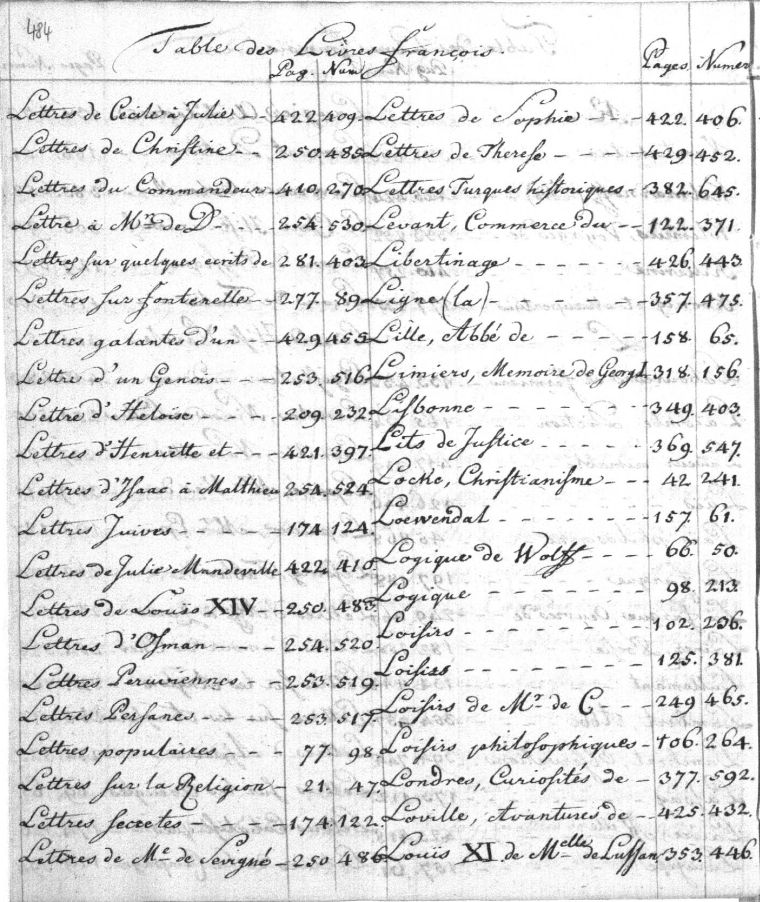 484
Table des Livres françois.
Pag. Num Pages. Numer
Lettres de Cecile à Julie - - 422. 409.
Lettres de Christine - - 250. 485.
Lettres du Commandeur - 410. 270.
Lettre à Mrs de D - - - 254. 530.
Lettres sur quelques ecrits de 281. 403.
Lettres sur fontenelle - - 277. 89.
Lettres galantes d'un - - 429. 455.
Lettre d'un Genois - - - 253. 516.
Lettre d'Heloise - - - - 209. 232.
Lettres d'Henriette et - - - 421. 397.
Lettres d'Isaac à Malthieu 254. 524.
Lettres Juives - - - - 174. 124.
Lettres de Julie Mandeville 422. 410.
Lettres de Louis XIV - - 250. 483.
Lettres d'Osman - - - 254. 520.
Lettres Peruviennes - - 253. 519.
Lettres Persanes - - - 253. 517.
Lettres populaires - - - 77. 98.
Lettres sur la Religion - 21. 47.
Lettres secretes - - - - 174. 122.
Lettres de Me de Sevigné - 250. 486.
Lettres de Sophie - - - 422. 406.
Lettres de Therese - - - - 429. 452.
Lettres Turques historiques - 382. 645.
Levant, Commerce du - - 122. 371.
Libertinage - - - - - - - 426. 443.
Ligne (la) - - - - - - - 357. 475.
Lille, Abbé de - - - - - 158. 65.
Limiers, Memoire de Georg I. 318. 156.
Lisbonne - - - - - - - 349. 403.
Lits de Justice - - - - - 369. 547.
Locke, Christianisme - - - 42. 241.
Loewendal - - - - - - - 157. 61.
Logique de Wolff - - - - 66. 50.
Logique - - - - - - - 98. 213.
Loisirs - - - - - - - - 102. 236.
Loisirs - - - - - - - - 125. 381.
Loisirs de Mr. de C - - - 249. 465.
Loisirs philosophiques - 106. 264.
Londres, Curiosités de - 377. 592.
Loville, Avantures de - - 425. 432.
Louis XI. de Melle de Lussan 353. 446.